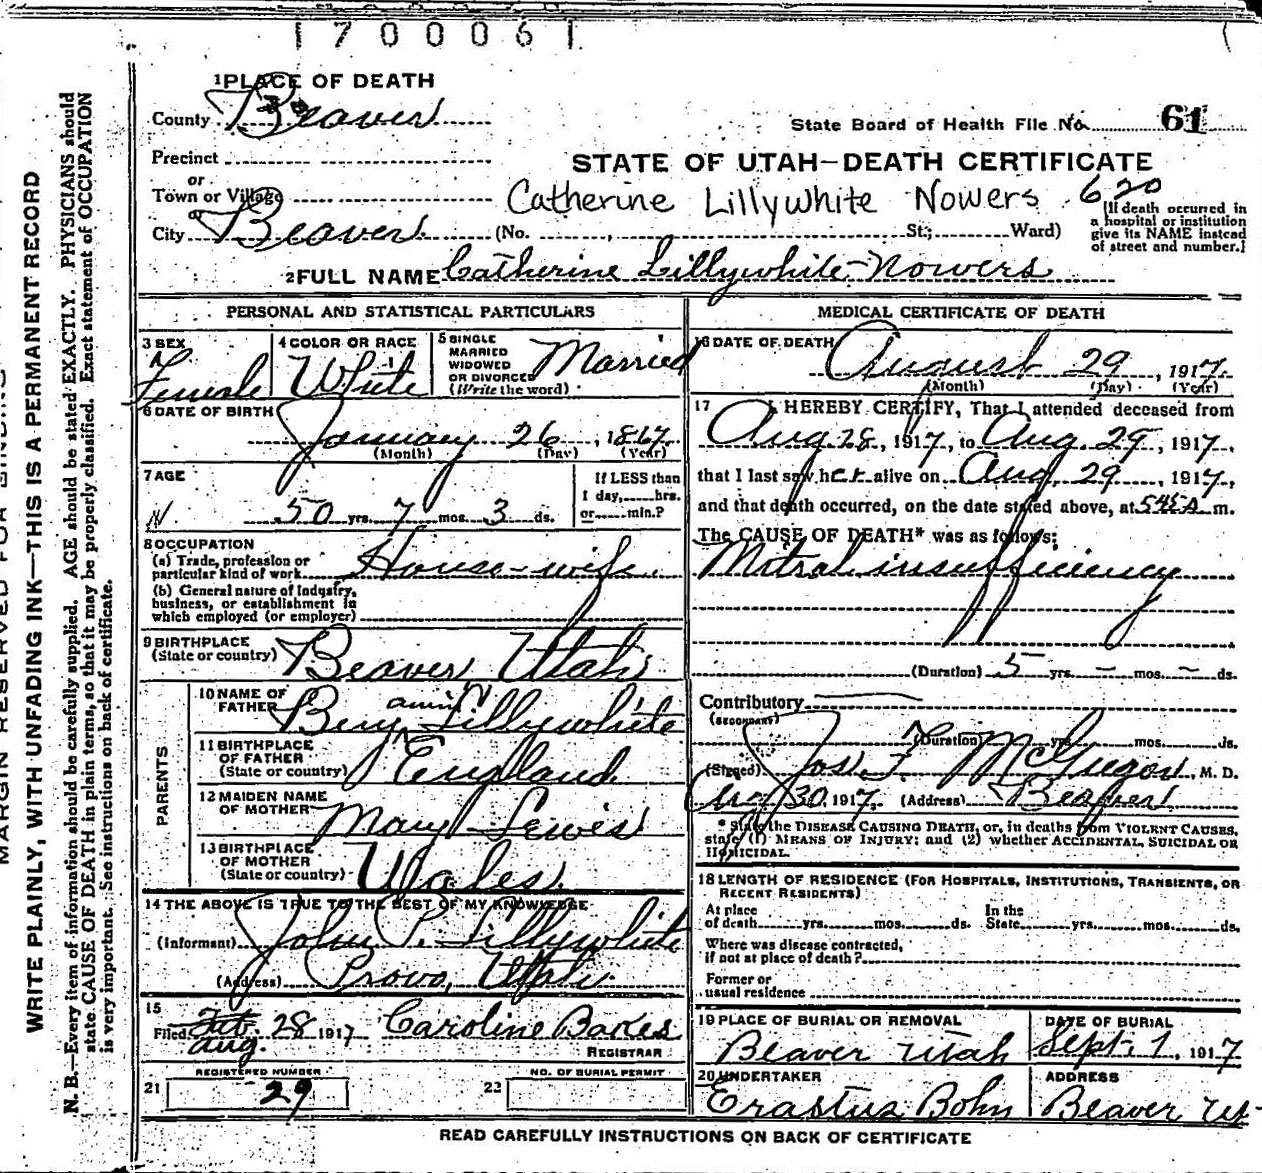 1700061
1 PLACE OF DEATH
County Beaver
State Board of Health File No. 61
Precinct
or
STATE OF UTAH—DEATH CERTIFICATE
Town or Village
Catherine Lillywhite Nowers 620
City Beaver (No. , St; Ward)
[If death occurred in
a hospital or institution
give its NAME instead
of street and number.]
2 FULL NAME Catherine Lillywhite-Nowers
PERSONAL AND STATISTICAL PARTICULARS
3 SEX
Female
4 COLOR OR RACE
White
5 SINGLE
MARRIED
WIDOWED
OR DIVORCED
(Write the word)
Married
6 DATE OF BIRTH
January 26, 1867
(Month) (Day) (Year)
7 AGE
50 yrs. 7 mos. 3 ds.
If LESS than
1 day, hrs.
or min.?
8 OCCUPATION
(a) Trade, profession or
particular kind of work House-wife
(b) General nature of Industry,
business, or establishment in
which employed (or employer)
9 BIRTHPLACE
(State or country) Beaver Utah
PARENTS
10 NAME OF
FATHER Benjamin Lillywhite
11 BIRTHPLACE
OF FATHER
(State or country) England
12 MAIDEN NAME
OF MOTHER Mary Lewis
13 BIRTHPLACE
OF MOTHER
(State or country) Wales
14 THE ABOVE IS TRUE TO THE BEST OF MY KNOWLEDGE
(Informant) John P. Lillywhite
(Address) Provo, Utah
15
Filed Feb. 28 1917 Caroline Bakes
Aug.
REGISTRAR
REGISTERED NUMBER
21 29
NO. OF BURIAL PERMIT
22
MEDICAL CERTIFICATE OF DEATH
16 DATE OF DEATH
August 29, 1917
(Month) (Day) (Year)
17 I HEREBY CERTIFY, That I attended deceased from
Aug. 28, 1917, to Aug. 29, 1917,
that I last saw her alive on Aug. 29, 1917,
and that death occurred, on the date stated above, at 5 45 A m.
The CAUSE OF DEATH* was as follows:
Mitral insufficiency
(Duration) 5 yrs. – mos. – ds.
Contributory
(SECONDARY)
(Duration) yrs. mos. ds.
(Signed) Jos. F. McGregor, M. D.
Aug 30, 1917. (Address) Beaver
* State the DISEASE CAUSING DEATH, or, in deaths from VIOLENT CAUSES,
state (1) MEANS OF INJURY; and (2) whether ACCIDENTAL, SUICIDAL OR
HOMICIDAL.
18 LENGTH OF RESIDENCE (FOR HOSPITALS, INSTITUTIONS, TRANSIENTS, OR
RECENT RESIDENTS)
At place
of death yrs. mos. ds.
In the
State yrs. mos. ds.
Where was disease contracted,
if not at place of death?
Former or
usual residence
19 PLACE OF BURIAL OR REMOVAL
Beaver Utah
DATE OF BURIAL
Sept. 1, 1917
20 UNDERTAKER
Erastus Bohn
ADDRESS
Beaver Ut
READ CAREFULLY INSTRUCTIONS ON BACK OF CERTIFICATE
MARGIN RESERVED FOR
WRITE PLAINLY, WITH UNFADING INK—THIS IS A PERMANENT RECORD
N. B.—Every item of information should be carefully supplied. AGE should be stated EXACTLY. PHYSICIANS should
state CAUSE OF DEATH in plain terms, so that it may be properly classified. Exact statement of OCCUPATION
is very important. See instructions on back of certificate.